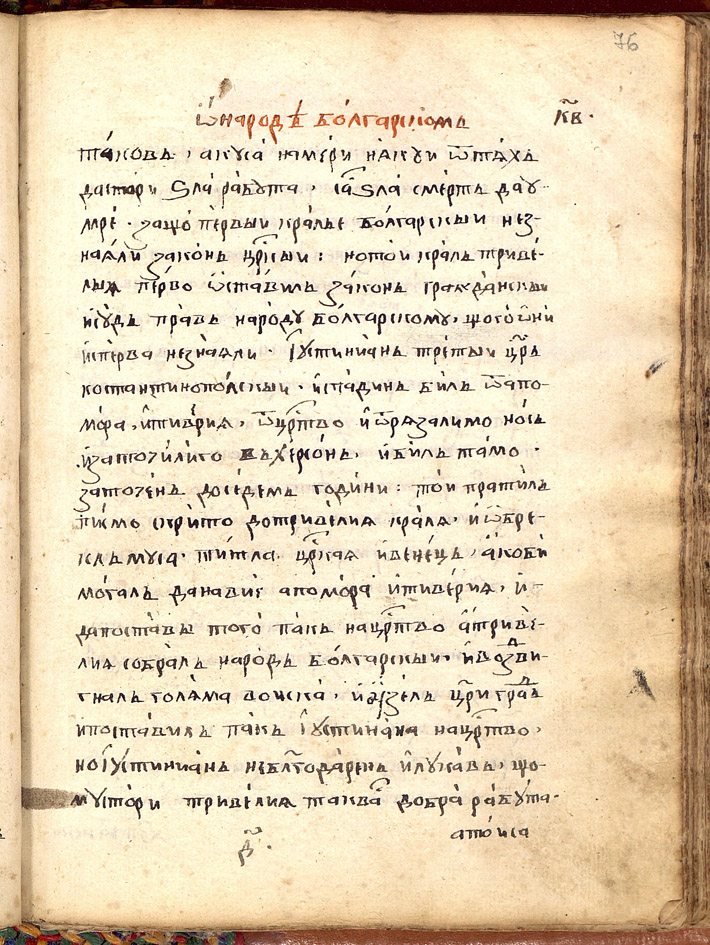 76
Ѡ҆ народѣ бо́лгарскомъ
к҃в.
та́ковъ, а куса̀ намѣри нꙗ́куи ѿ тѧ́хъ
да стори ѕла̀ ра́бута, са̑ ѕла̀ смерть да у-
мре́. защо̀ первыи кра́лье бо́лгарскыи нез-
наꙗ́ли законь цр҃скыи: но то́и краль триве́-
лыа пе́рво ѡ҆ставиль зако́нь гражда́нскыи
и҆ судъ пра́въ народу бо́лгарскому, що го ѡ҆ни
и҆спе́рва незнаꙗли. І҆устиниань тре́тыи цр҃ь
костантинопо́лскыи. и҆спадинь би́ль ѿ апо-
мо́ра, и҆ тиве́рия, ѿ цр҃тво и҆ ѿрязали мо но́съ
и҆ заточи́ли го въ херсо́нь, и҆ биль та́мо
заточе́нь до се́демь години: то́и пратиль
пи́смо скрито до триве́лия краля, и҆ ѡ҆бре-
клъ муса. ти́тла цр҃ская и҆ вене́ць, а҆ко би
мо́галь да навие апомо́ра и҆ тиве́рия, и҆
да поставы того пакь на цр҃тво а҆ триве́-
лия собра́ль наро́дь бо́лгарскыи, и҆ воздви-
гналь голя́ма во́иска, и҆ взе́ль цр҃и гра́д
и҆ поставиль пакь І҆устиниа́на на цр҃тво,
но І҆устиниань небл҃года́рень и҆ лука́вь, що
му сто́ри триве́лия такваѧ добра̀ ра́бута.
а то́и са
д҃.